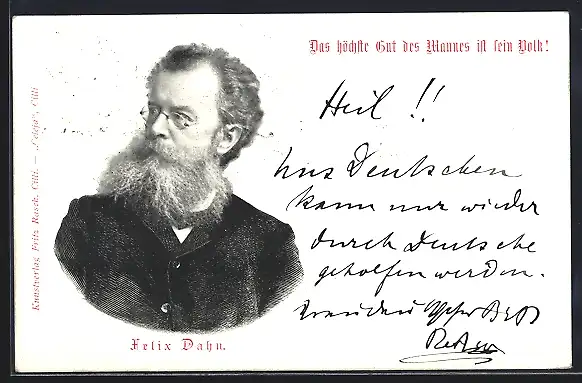 Das höchste Gut des Mannes ist sein Volk!
Heil !!
Uns Deutschen
kann nur wieder
durch Deutsche
geholfen werden.
Kunstverlag Fritz Rasch. Cilli. — „Celeja“, Cilli
Felix Dahn.